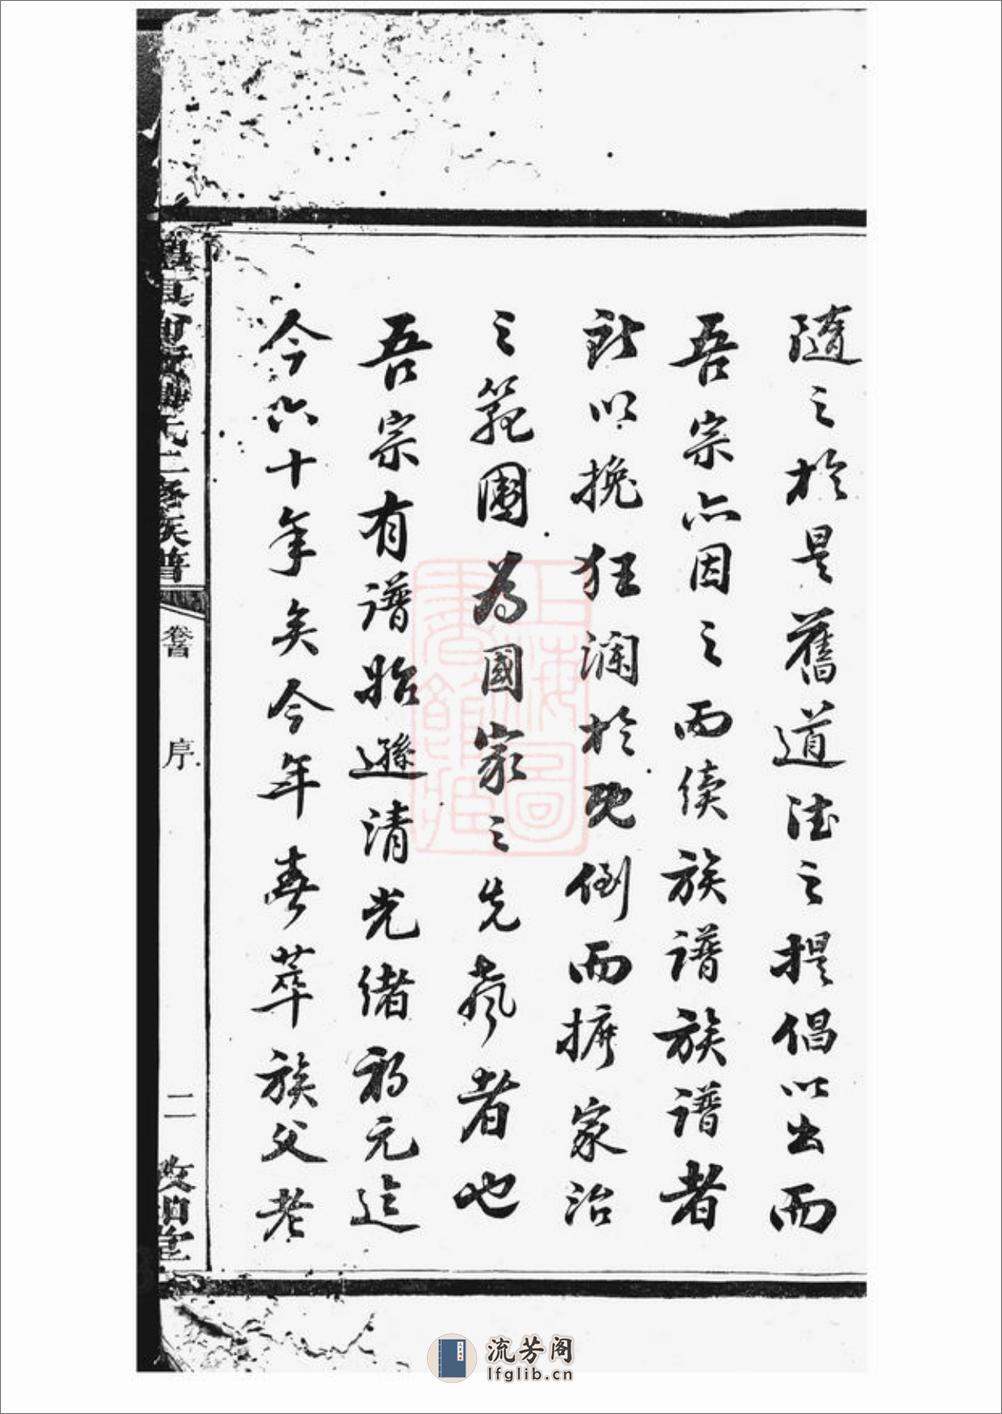 隨之於是舊道德之提倡以出而
吾宗亦因之而續族譜族譜者
所以挽狂瀾於既倒而摒家治
之範圍為國家之先聲者也
吾宗有譜始遜清光緒初元迄
今六十年矣今年春萃族父老
氏二修族譜
卷首
序
二
敦
堂
上海圖書館藏
流芳阁
lfglib.cn